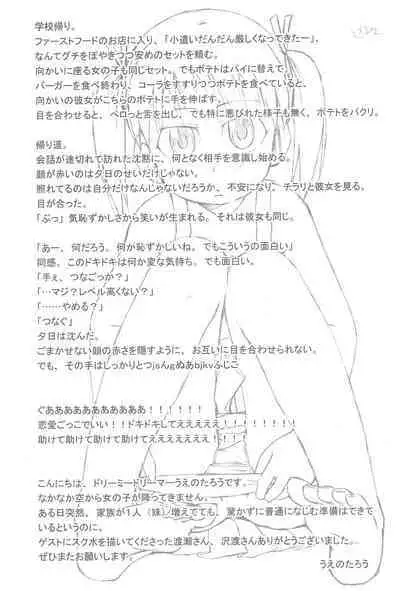 学校帰り。
ファーストフードのお店に入り、「小遣いだんだん厳しくなってきたー」、
なんてグチをぼやきつつ安めのセットを頼む。
向かいに座る女の子も同じセット。でもポテトはパイに替えて。
バーガーを食べ終わり、コーラをすすりつつポテトを食べていると、
向かいの彼女がこちらのポテトに手を伸ばす。
目を合わせると、ペロっと舌を出し、でも特に悪びれた様子も無く、ポテトをパクリ。
帰り道。
会話が途切れて訪れた沈黙に、何となく相手を意識し始める。
顔が赤いのは夕日のせいだけじゃない。
照れてるのは自分だけなんじゃないだろうか、不安になり、チラリと彼女を見る。
目が合った。
「ぷっ」気恥ずかしさから笑いが生まれる。それは彼女も同じ。
「あー、何だろう。何か恥ずかしいね。でもこういうの面白い」
同感、このドキドキは何か変な気持ち。でも面白い。
「手ぇ、つなごっか？」
「…マジ？レベル高くない？」
「……やめる？」
「つなぐ」
夕日は沈んだ。
ごまかせない顔の赤さを隠すように、お互いに目を合わせられない。
でも、その手はしっかりとつjsんgぬあbjkvふじこ
ぐあああああああああああ！！！！！！
恋愛ごっこでいい！！ドキドキしてえええええ！！！！！！！！
助けて助けて助けて助けてえええええええ！！！！
こんにちは、ドリーミードリーマーうえのたろうです。
なかなか空から女の子が降ってきません。
ある日突然、家族が1人（妹）増えてても、驚かずに普通になじむ準備はできて
いるというのに。
ゲストにスク水を描いてくださった渡瀬さん、沢渡さんありがとうございました。
ぜひまたお願いします。
うえのたろう